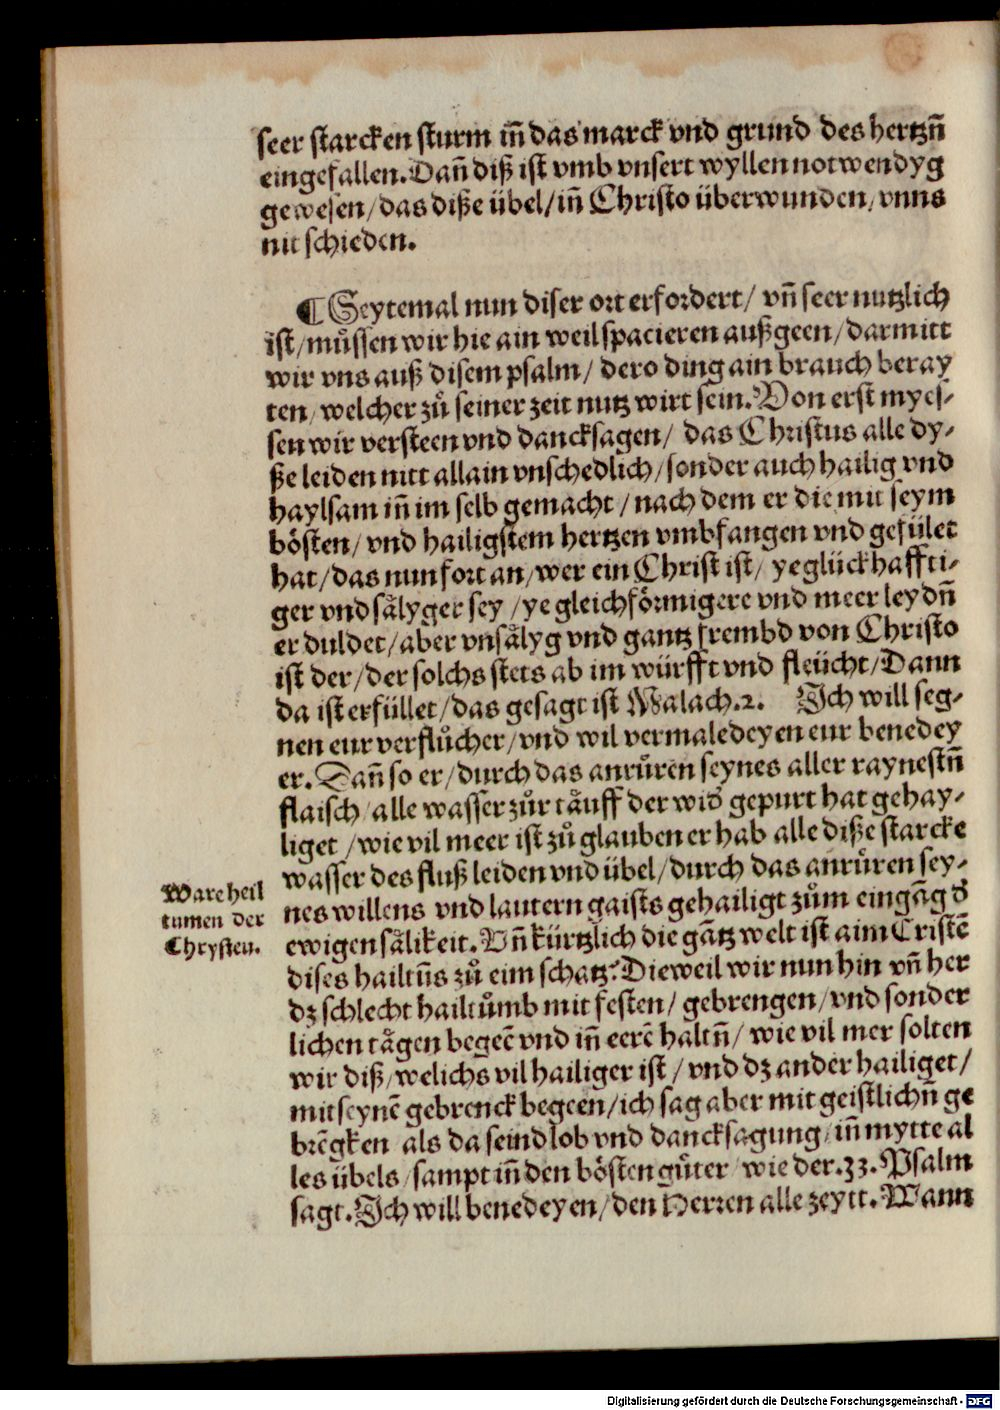 seer starcken sturm iñ das marck vnd grund des hertzñ
eingefallen. Dañ diß ist vmb vnsert wyllen notwendyg
gewesen / das diße übel / iñ Christo überwunden / vnns
nit schieden.
¶ Seytemal nun diser ort erfordert / vñ seer nutzlich
ist / můssen wir hie ain weil spacieren außgeen / darmitt
wir vns auß disem psalm / dero ding ain brauch beray
ten / welcher zů seiner zeit nutz wirt sein. Von erst myes-
sen wir versteen vnd dancksagen / das Christus alle dy-
ße leiden nitt allain vnschedlich / sonder auch hailig vnd
haylsam iñ im selb gemacht / nach dem er die mit seym
bösten / vnd hailigstem hertzen vmbfangen vnd gefület
hat / das nun fort an / wer ein Christ ist / ye glückhaffti-
ger vnd sålyger sey / ye gleichförmigere vnd meer leydñ
er duldet / aber vnsålyg vnd gantz frembd von Christo
ist der / der solchs stets ab im würfft vnd fleücht / Dann
da ist erfüllet / das gesagt ist Malach.2. Ich will seg-
nen eur verflůcher / vnd wil vermaledeyen eur benedey
er. Dañ so er / durch das anrůren seynes aller raynestñ
flaisch / alle wasser zůr tåuff der wið gepurt hat gehay-
liget / wie vil meer ist zů glauben er hab alle diße starcke
wasser des fluß leiden vnd übel / durch das anrůren sey-
nes willens vnd lautern gaists gehailigt zům eingãg ð
ewigen sålikeit. Vñ kürtzlich die gãtz welt ist aim Cristẽ
dises hailtũs zů eim schatz? Dieweil wir nun hin vñ her
dz schlecht hailtůmb mit festen / gebrengen / vnd sonder
lichen tågen begeẽ vnd iñ eerẽ haltñ / wie vil mer solten
wir diß / welichs vil hailiger ist / vnd dz ander hailiget /
mit seynẽ gebrenck begeen / ich sag aber mit geistlichñ ge
brẽgken als da seind lob vnd dancksagung / iñ mytte al
les übels / sampt iñ den bösten gůter / wie der .33. Psalm
sagt. Ich will benedeyen / den Herren alle zeytt. Wann
Ware heil
tumen der
Chrysten.
Digitalisierung gefördert durch die Deutsche Forschungsgemeinschaft - DFG